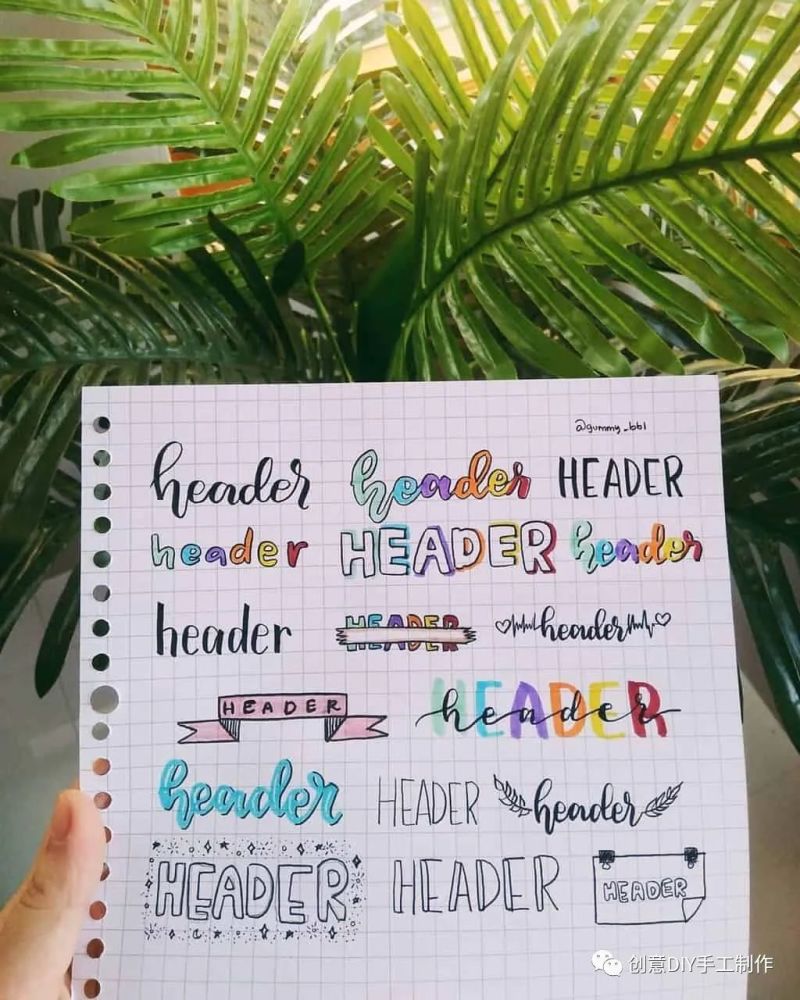 @gummy_bbl
header header HEADER
header HEADER header
header HEADER header
HEADER header
HEADER
header HEADER header
HEADER HEADER HEADER
创意DIY手工制作